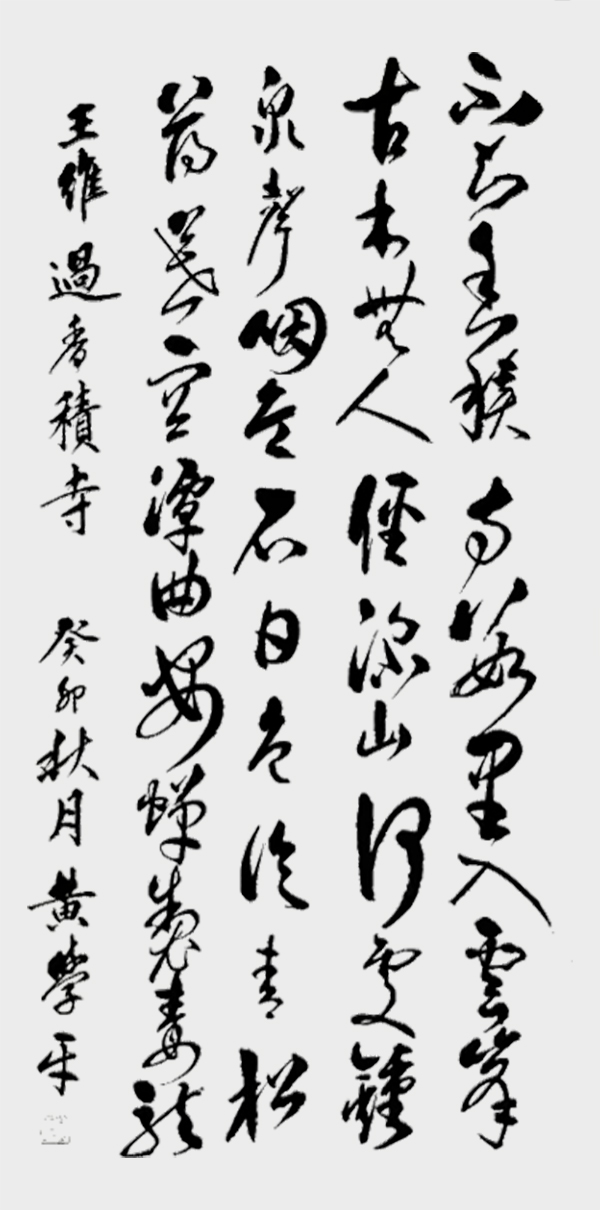 不知香積寺數里入雲峯
古木無人徑深山何處鍾
泉聲咽危石日色冷青松
薄暮空潭曲安禪製毒龍
王維過香積寺 癸卯秋月黃學平